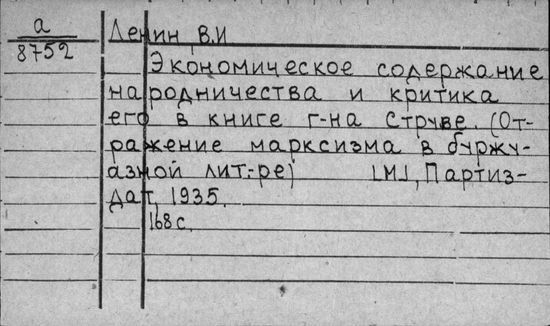 а
8752
Ленин В.И
Экономическое содержание
народничества и критика
его в книге г-на Струве. (От-
ражение марксизма в буржу-
азной лит-ре) [М], Партиз-
дат, 1935.
168 с.